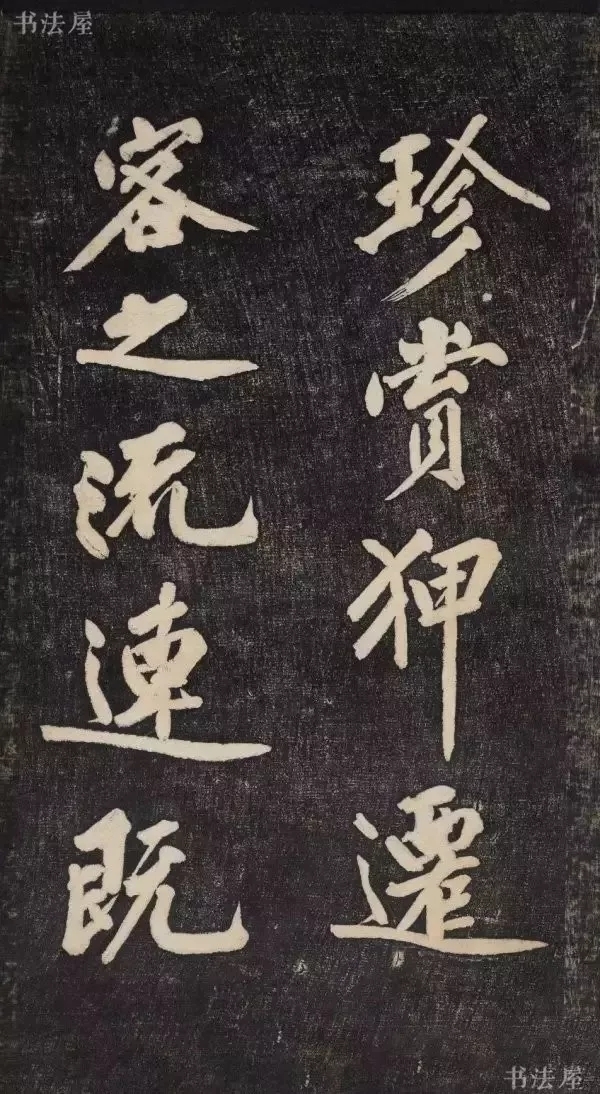 书法屋
珍賞狎遷
客之流連既
书法屋